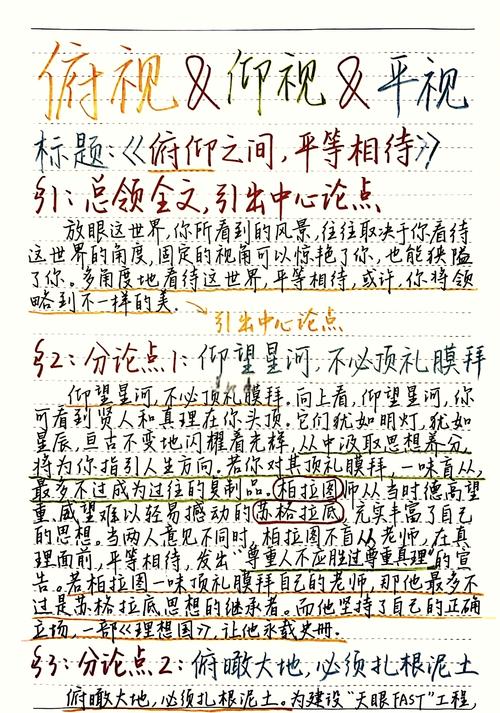 俯视&仰视&平视
标题:《俯仰之间,平等相待》
§1:总领全文,引出中心论点
放眼这世界,你所看到的风景,往往取决于你看待
这世界的角度,固定的视角可以惊艳了你,也能狭隘
了你。多角度地看待这世界,平等相待,或许,你将领
略到不一样的美.
引出中心论点
§2:分论点1:仰望星河,不必顶礼膜拜
仰望星河,不必顶礼膜拜.向上看,仰望星河,你
可看到贤人和真理在你头顶.它们犹如明灯,犹如
星辰,亘古不变地闪耀着光辉,从中汲取思想养分,
将为你指引人生方向.若你对其顶礼膜拜,一味盲从,
最多不过成为过往的复制品.柏拉图师从当时德高望
重、威望难以轻易撼动的苏格拉底,充实丰富了自己
的思想.当两人意见不同时,柏拉图不盲从老师,在真
理面前,平等相待,发出“尊重人不应胜过尊重真理”的宣
告.若柏拉图一味顶礼膜拜自己的老师,那他最多不
过是苏格拉底思想的继承者.而他坚持了自己的正确
立场,一部《理想国》,让他永载史册.
§3:分论点2:俯瞰大地,必须扎根泥土
俯瞰大地,必须扎根泥土.为建设“天眼FAST”工程,